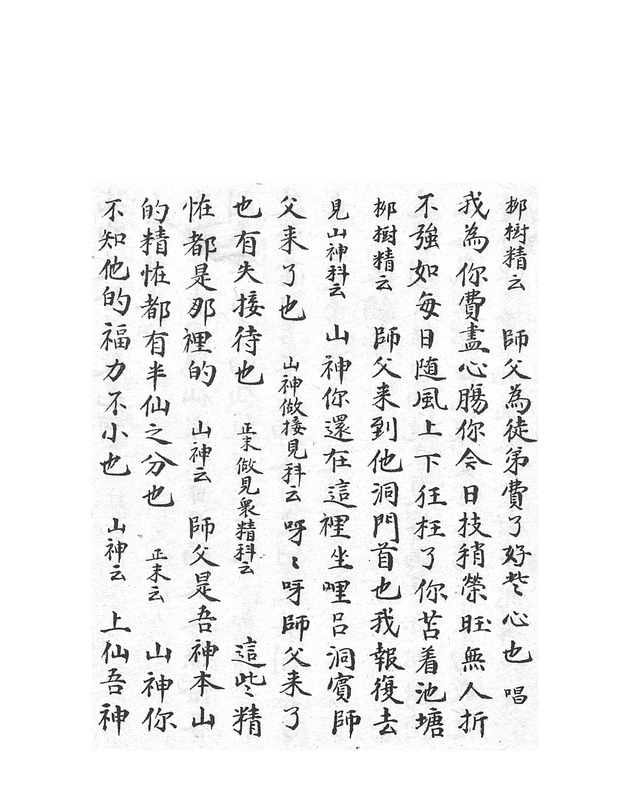 柳樹精云　師父為徒弟費了好些心也　唱
我為你費盡心腸你今日枝稍榮旺無人折
不強如每日随風上下狂枉了你苫着池塘
柳樹精云　師父来到他洞門首也我報復去
見山神科云　山神你還在這裡坐哩吕洞賔師
父来了也　山神做接見科云呀〻呀師父来了
也有失接待也　正末做見衆精科云　這些精
恠都是那裡的　山神云　師父是吾神本山
的精恠都有半仙之分也　正末云　山神你
不知他的福力不小也　山神云　上仙吾神